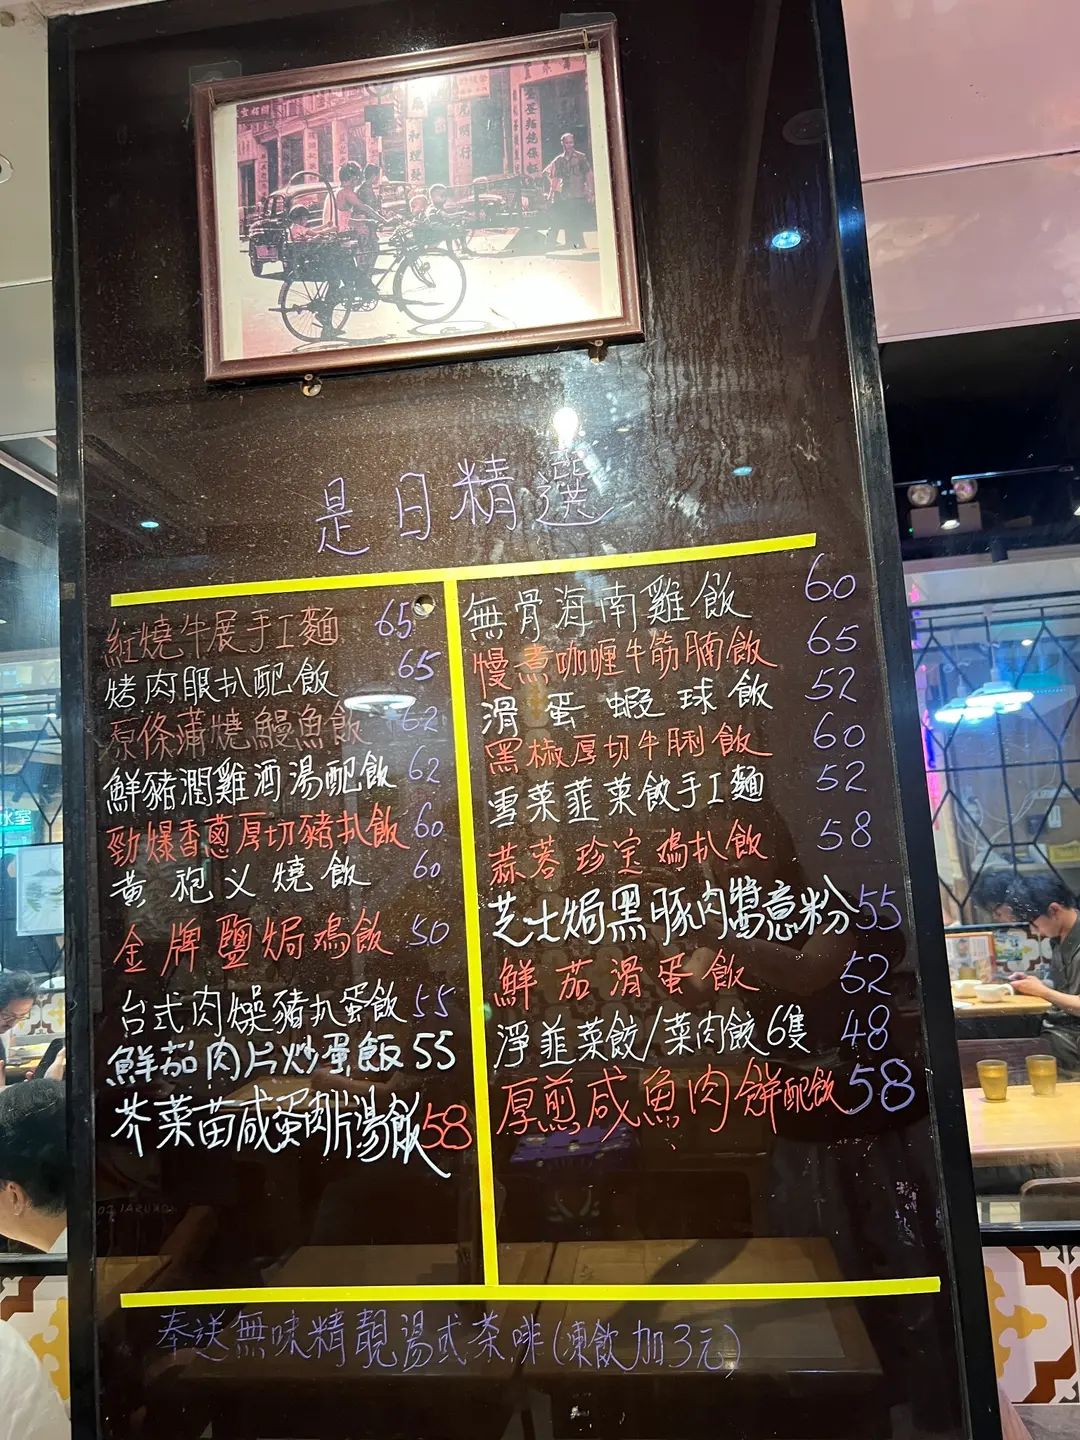 是日精選
紅燒牛展手工麵 65
烤肉眼扒配飯 65
原條蒲燒鰻魚飯 62
鮮豬潤雞酒湯配飯 62
勁爆香蔥厚切豬扒飯 60
黃袍义燒飯 60
金牌鹽焗鸡飯 50
台式肉燥豬扒蛋飯 55
鮮茄肉片炒蛋飯 55
芥菜苗咸蛋肉片湯飯 58
無骨海南雞飯 60
慢煮咖喱牛筋腩飯 65
滑蛋蝦球飯 52
黑椒厚切牛脷飯 60
雪菜韮菜餃手工麵 52
蒜蓉珍宝鸡扒飯 58
芝士焗黑豚肉醬意粉 55
鮮茄滑蛋飯 52
淨韮菜餃/菜肉餃6隻 48
厚煎咸魚肉餅配飯 58
奉送無味精靚湯或茶啡(凍飲加3元)